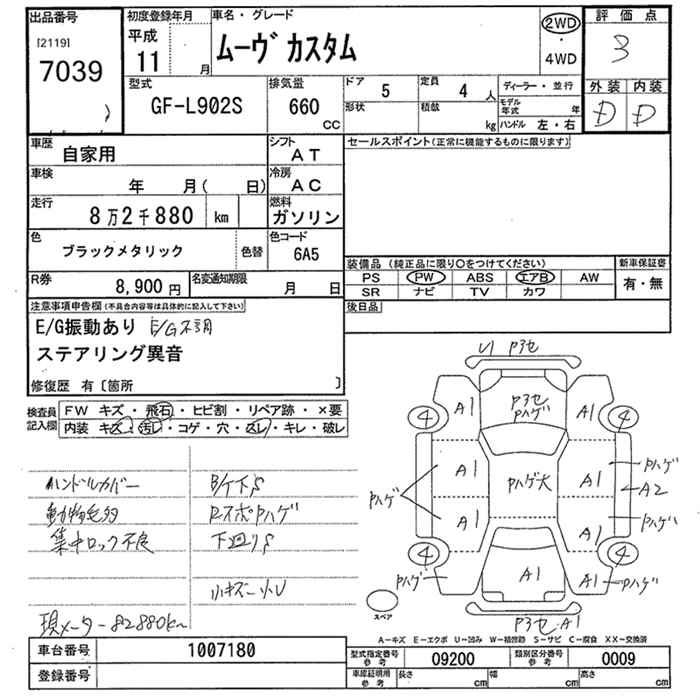 出品番号
[2119]
7039
初度登録年月
平成
11 月
車名・グレード
ムーヴ カスタム
2WD
・
4WD
評価点
3
外装 内装
D D
型式
GF-L902S
排気量
660
CC
ドア
5
定員
4 人
形状
積載
kg
ディーラー・並行
モデル年式 年
ハンドル 左・右
車歴
自家用
シフト
AT
車検
年 月( 日)
冷房
AC
走行
8万2千880 km
燃料
ガソリン
色
ブラックメタリック
色替
色コード
6A5
R券
8,900円
名変通知期限
月 日
セールスポイント(正常に機能するものに限ります)
装備品 (純正品に限り○をつけてください)
PS PW ABS エアB AW
SR ナビ TV カワ
新車保証書
有・無
後日品
注意事項申告欄(不具合内容等は具体的に記入して下さい)
E/G振動あり E/G不調
ステアリング異音
修復歴 有〔箇所 〕
検査員記入欄
FW キズ・飛石・ヒビ割・リペア跡・×要
内装 キズ・汚レ・コゲ・穴・スレ・キレ・破レ
ハンドルカバー
動物毛多
集中ロック不良
現メーター82880km
B/ケ下S
RスポPハゲ
下廻りS
小キズ小U
U1 P3セ
A1 P3セ A1
Pハゲ
4 4
A1 A1 Pハゲ
Pハゲ Pハゲ大 A2
A1 A1 Pハゲ
4 4
Pハゲ A1 A1 A1 Pハゲ
P3セ・A1
スペア
A-キズ E-エクボ U-凹み W-補修跡 S-サビ C-腐食 XX-交換済
車台番号 1007180
登録番号
型式指定番号 参考 09200
類別区分番号 参考 0009
車庫証明用 参考 長さ cm 幅 cm 高さ cm